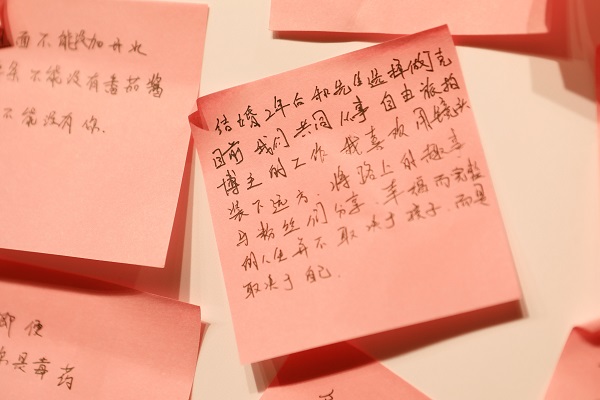 面不能没加开水
条不能没有番茄酱
不能没有你.
结婚2年后和先生选择做丁克
目前我们共同从事自由旅拍
博主的工作 我喜欢用镜头
装下远方.将路上的趣事
与粉丝们分享.幸福而完整
的人生并不取决于孩子.而是
取决于自己.
即便
是毒药